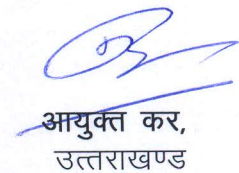 आयुक्त कर,
उत्तराखण्ड